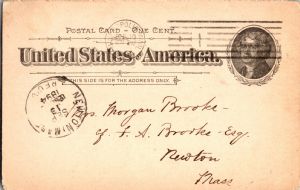 POSTAL CARD - ONE CENT.
United States of America.
THIS SIDE IS FOR THE ADDRESS ONLY.
Mrs. Morgan Brooke-
of F. A. Brooke-Esq.
Newton
Mass